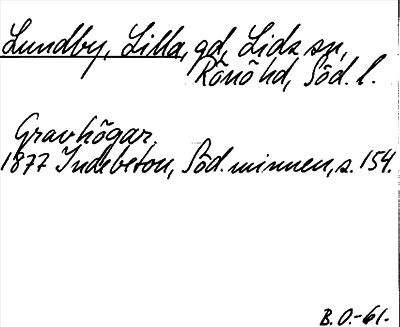 Lundby, Lilla, gd, Lids sn,
Rönö hd, Söd. l.
Gravhögar.
1877 Indebetou, Söd. minnen, s. 154.
B.O.-61.